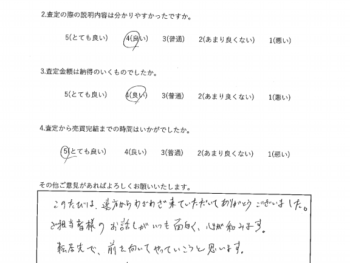 2.査定の際の説明内容は分かりやすかったですか。
5(とても良い) 4(良い) 3(普通) 2(あまり良くない) 1(悪い)
3.査定金額は納得のいくものでしたか。
5(とても良い) 4(良い) 3(普通) 2(あまり良くない) 1(悪い)
4.査定から売買完結までの時間はいかがでしたか。
5(とても良い) 4(良い) 3(普通) 2(あまり良くない) 1(悪い)
その他ご意見があればよろしくお願いいたします。
このたびは、遠方からわざわざ来ていただいてありがとうございました。
ご担当者様のお話しがいつも面白く、心が和みます。
転居先で、前を向いてやっていこうと思います。